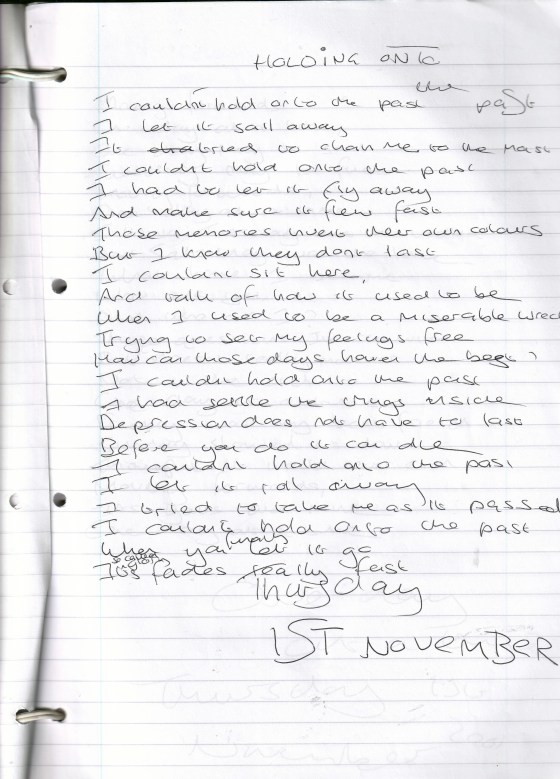 HOLDING ONTO
the
I couldn't hold onto the past past
I let it sail away
It tried to chain me to the mast
I couldnt hold onto the past
I had to let it fly away
And make sure it flew fast
Those memories invent their own colours
But I know they dont last
I couldnt sit here,
And talk of how it used to be
When I used to be a miserable wrec
Trying to set my feelings free
How can those days have been the best ?
I couldnt hold onto the past
I had settle the things inside
Depression does not have to last
Before you do it can die
I couldnt hold onto the past
I let it away
I tried to take me as it passed
I couldnt hold onto the past
finally
When you let it go
Its fades really fast
Thursday
1ST NOVEMBER